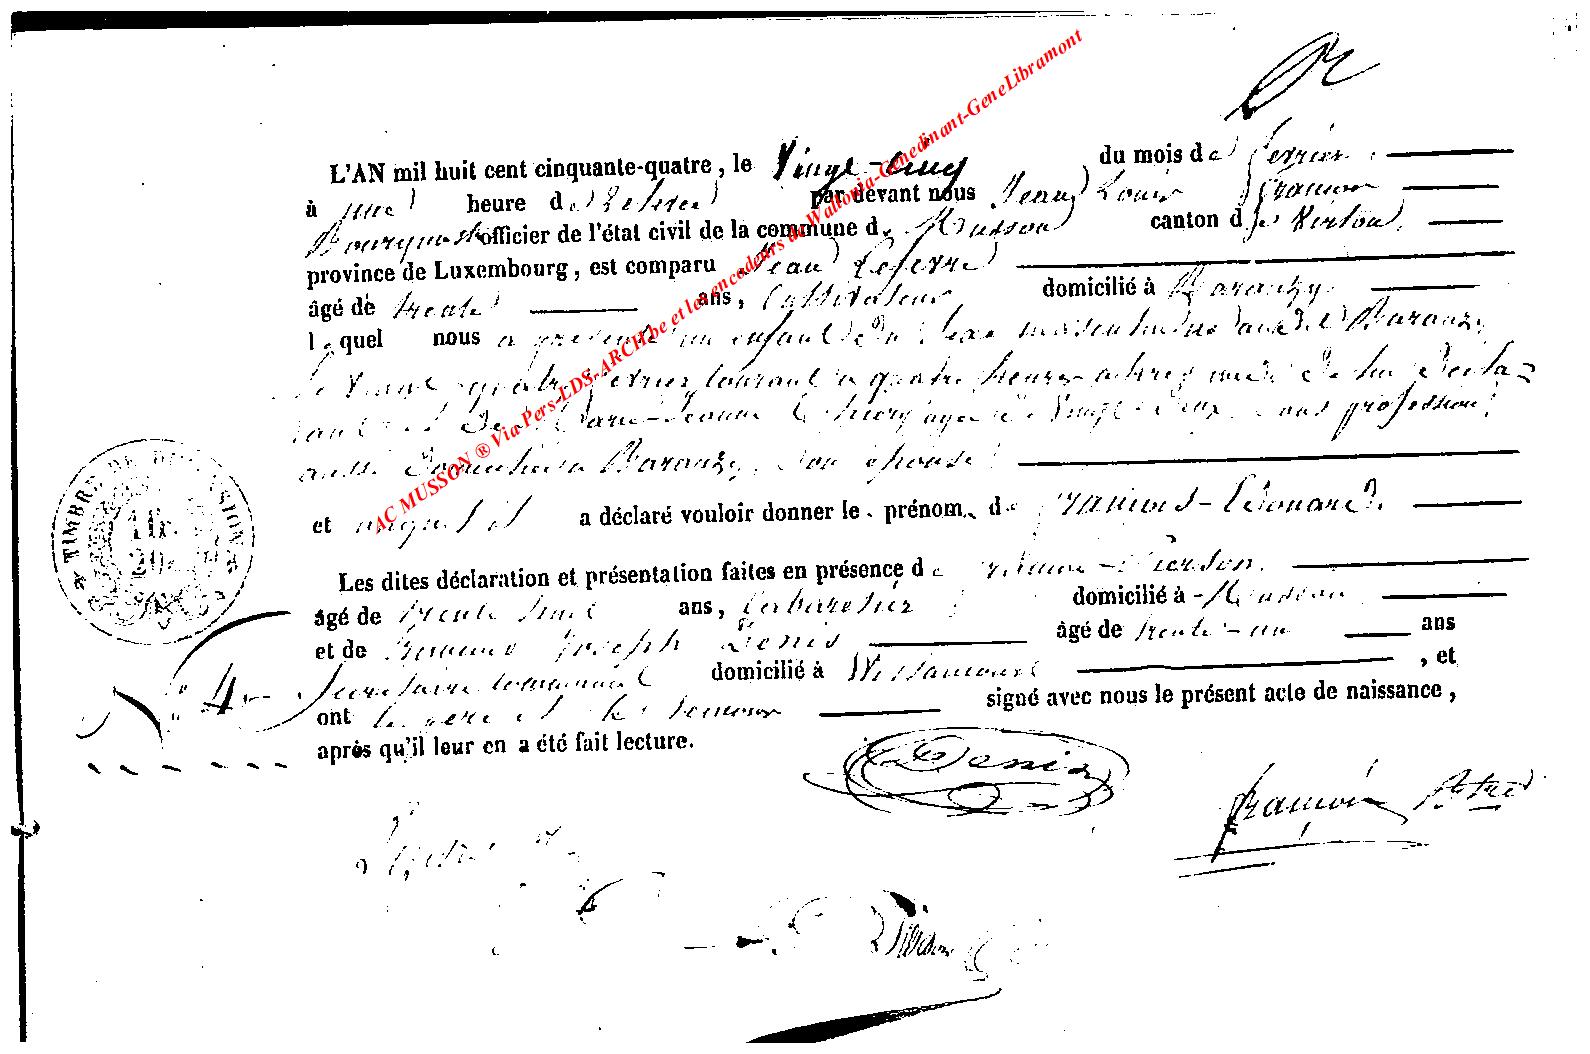 L'AN mil huit cent cinquante-quatre, le Vingt-cinq du mois de février
à une heure de relevée par devant nous Jean Louis François
Bourgmestre officier de l'état civil de la commune de Musson canton de Virton,
province de Luxembourg, est comparu Jean Lefevre
âgé de trente ans, Cultivateur domicilié à Baranzy
lequel nous a présenté un enfant du sexe masculin né à Baranzy
le vingt-quatre février courant à quatre heures après midi de lui décla=
rant et de Marie-Jeanne âgée de vingt-deux ans profession
aussi domiciliée à Baranzy, son épouse
et auquel il a déclaré vouloir donner les prénoms de François-Edouard.
Les dites déclaration et présentation faites en présence de Pierson.
âgé de trente huit ans, Cabaretier domicilié à Musson
et de Joseph Denis âgé de trente-un ans
Secrétaire communal domicilié à Willancourt, et
ont le père et les témoins signé avec nous le présent acte de naissance,
après qu'il leur en a été fait lecture.
TIMBRE DE DIMENSION
1 fr.
20
N° 4
Denis
François
Lefevre
Pierson
AC MUSSON ® Via Pers-LDS-ARCH.be et les encodeurs de Wallonia-Genedinant-GeneLibramont